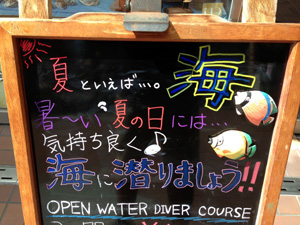 夏といえば…。海
暑〜い夏の日には…
気持ち良く♪
海に潜りましょう!!
OPEN WATER DIVER COURSE